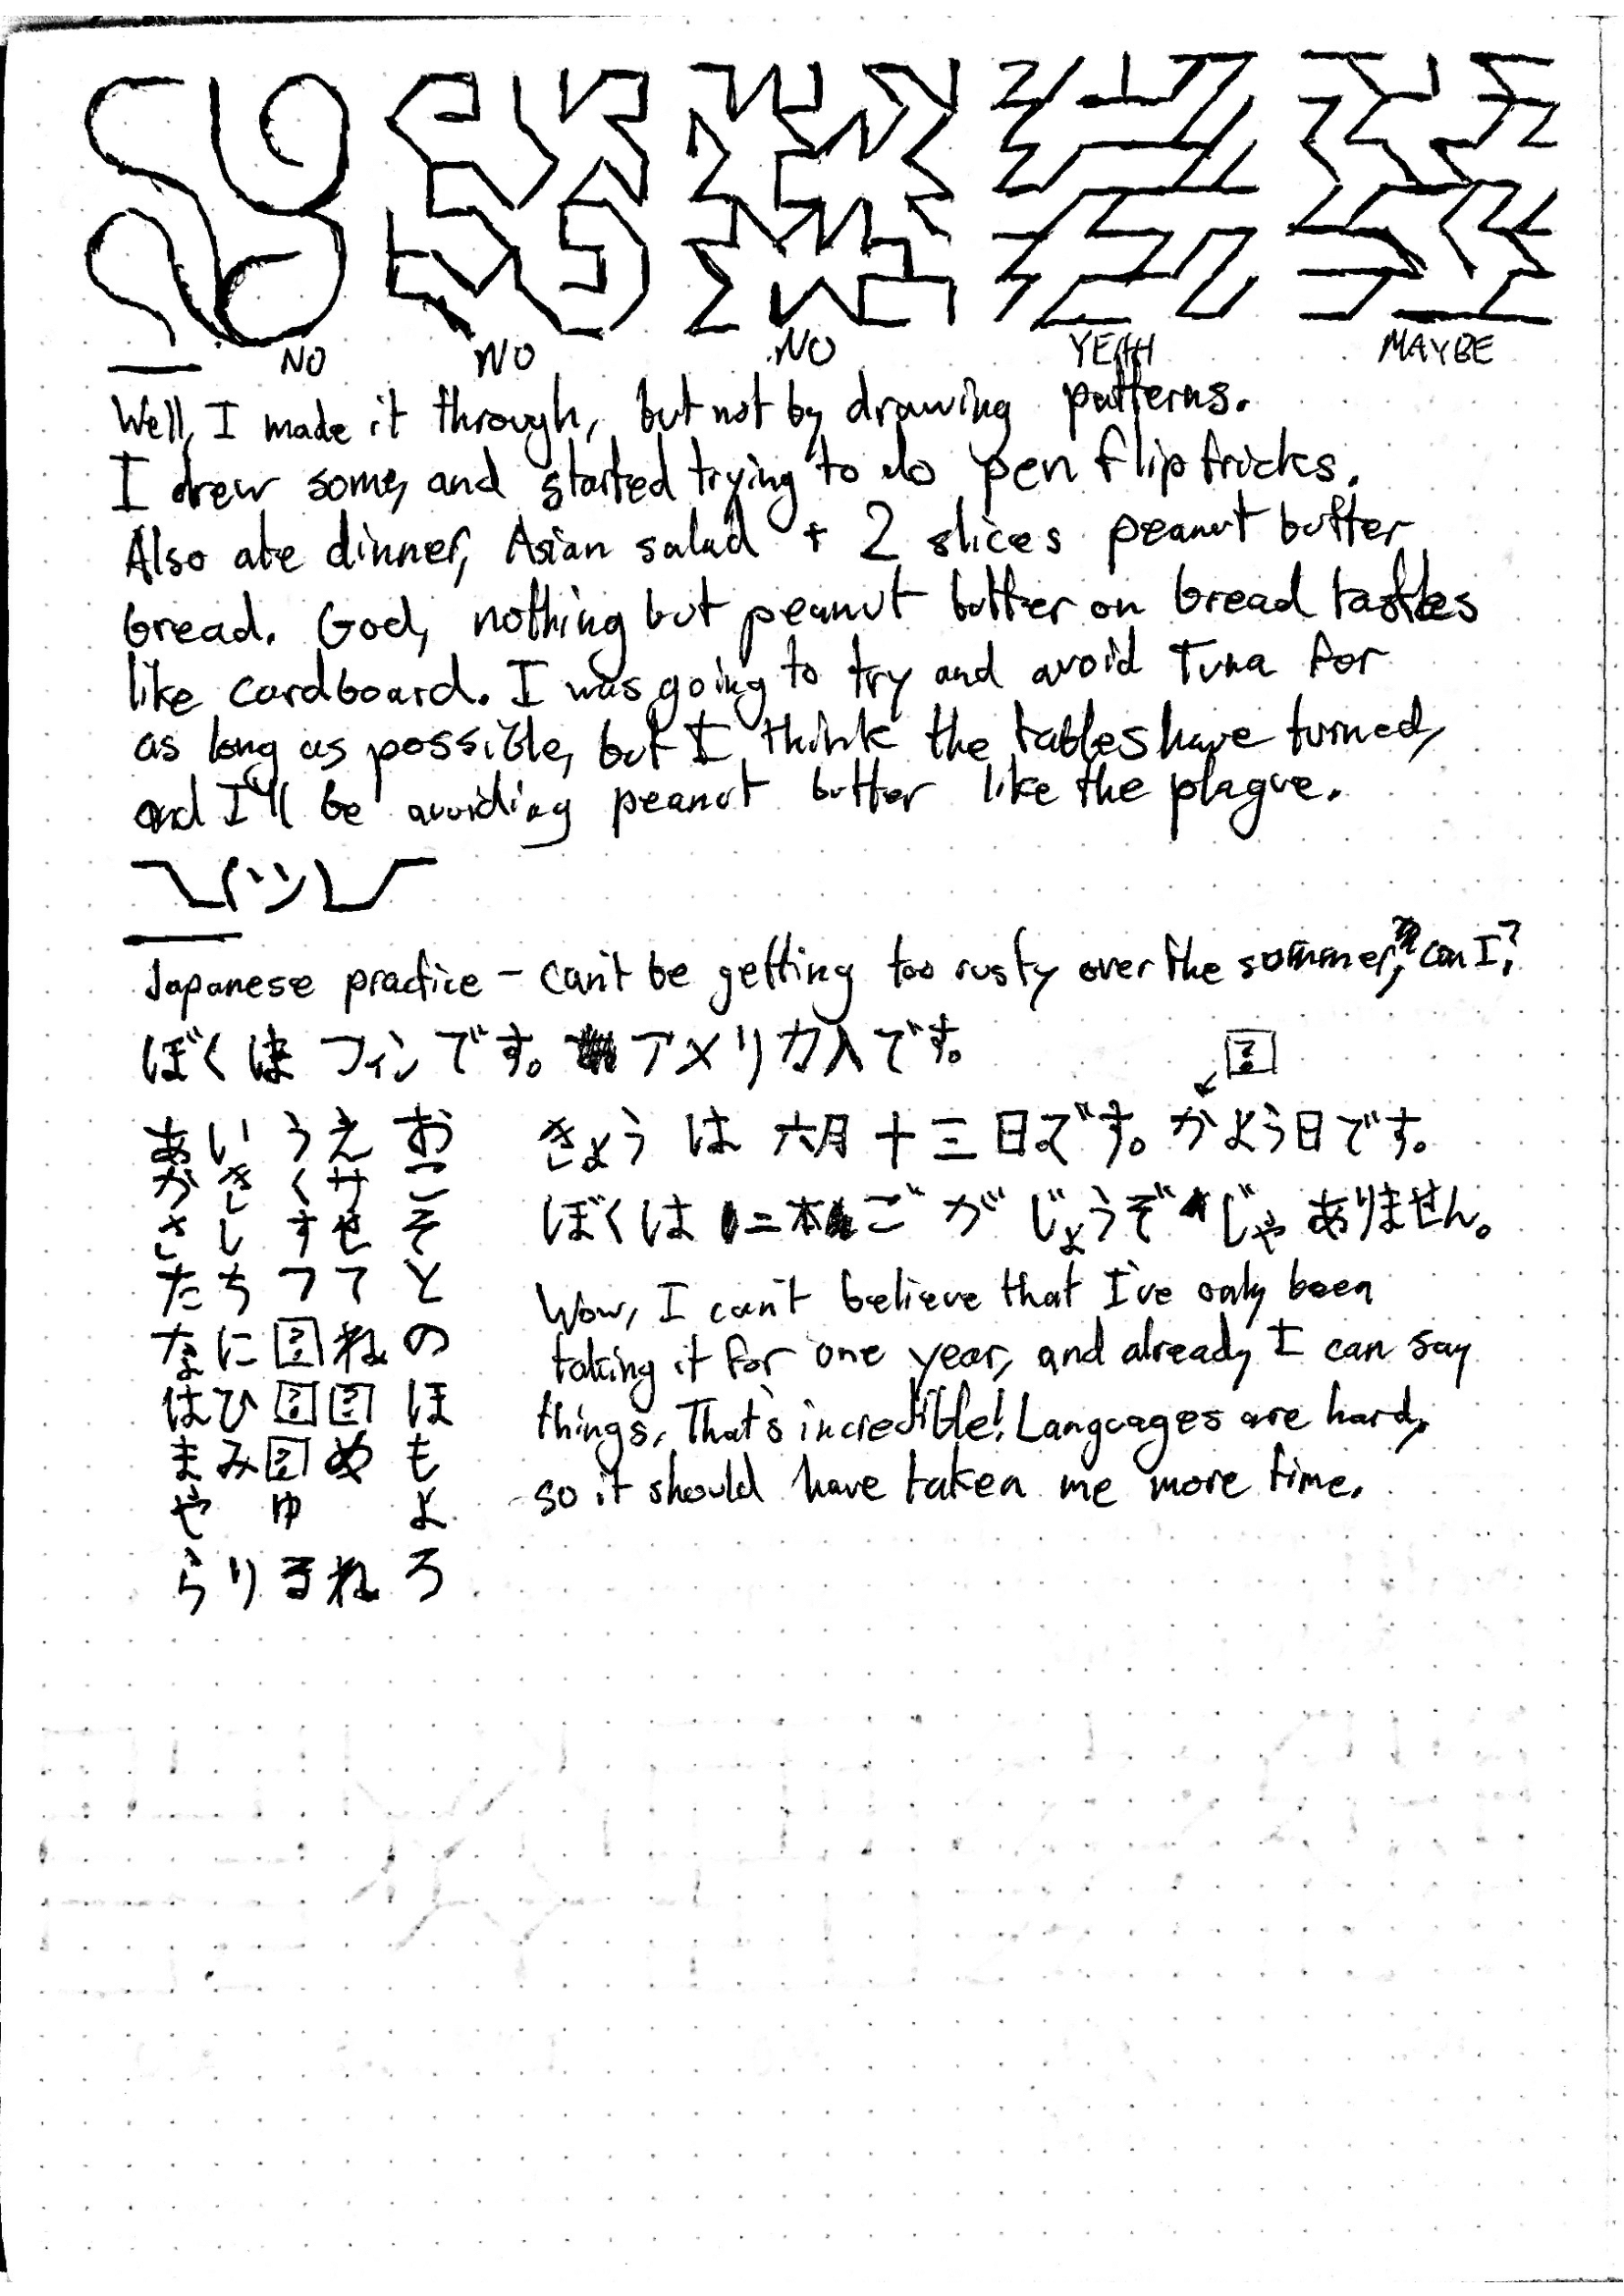 NO NO NO YEAH MAYBE
Well, I made it through, but not by drawing patterns.
I drew some, and started trying to do pen flip tricks.
Also ate dinner, Asian salad + 2 slices peanut butter
bread. God, nothing but peanut butter on bread tastes
like cardboard. I was going to try and avoid Tuna for
as long as possible, but I think the tables have turned,
and I'll be avoiding peanut butter like the plague.
¯\_(ツ)_/¯
Japanese practice - can't be getting too rusty over the summer, can I?
ぼくは フィンです。アメリカ人です。
?
あいうえお
かきくサこ
さしすせそ
たちつてと
なに?ねの
はひ??ほ
まみ?めも
やゆよ
らりるれろ
きょうは 六月十三日です。かよう日です。
ぼくは 二本ご が じょうぞ じゃ ありません。
Wow, I can't believe that I've only been
taking it for one year, and already I can say
things. That's incredible! Languages are hard,
so it should have taken me more time.